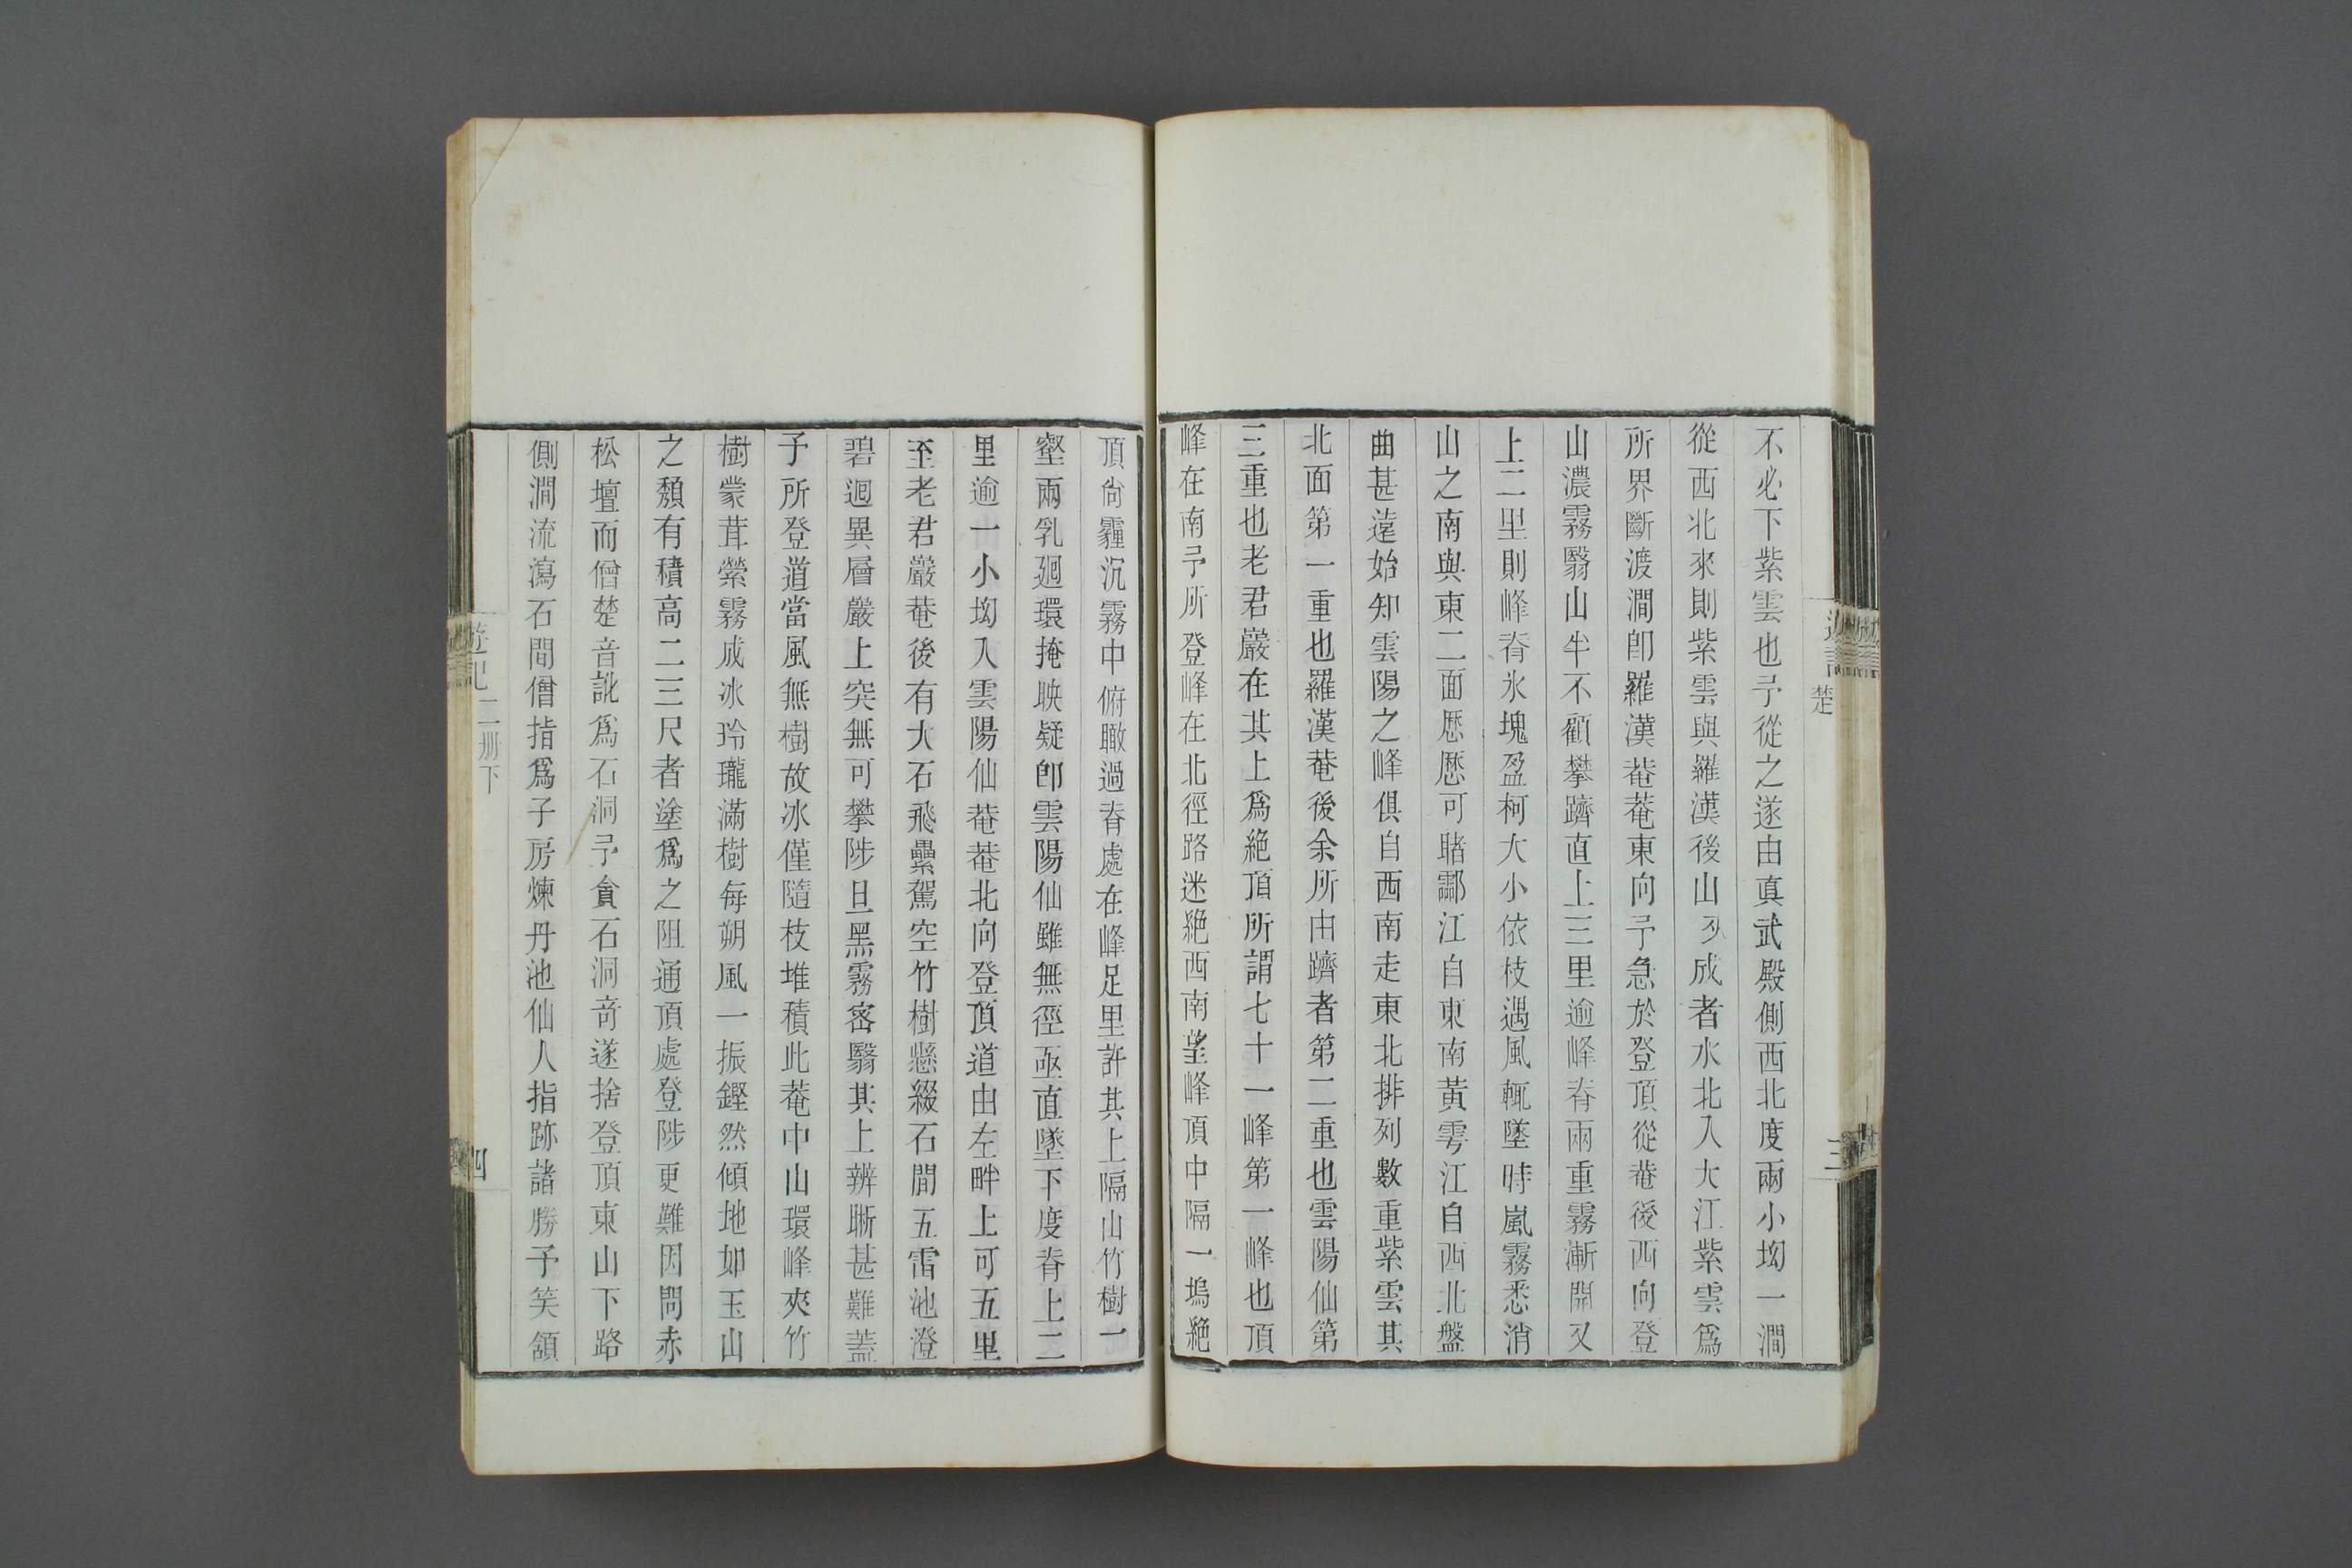 不必下紫雲也予從之遂由眞武殿側西北度兩小坳一澗
從西北來則紫雲與羅漢後山夾成者水北入大江紫雲爲
所界斷渡澗卽羅漢菴菴東向予急於登頂從菴後西向登
山濃霧翳山半不顧攀躋直上三里逾峰脊兩重霧漸開又
上二里則峰脊氷塊盈柯大小依枝遇風輒墜時嵐霧悉消
山之南與東二面歷歷可睹酃江自東南黃雩江自西北盤
曲甚遠始知雲陽之峰俱自西南走東北排列數重紫雲其
北面第一重也羅漢菴後余所由躋者第二重也雲陽仙第
三重也老君巖在其上爲絶頂所謂七十一峰第一峰也頂
峰在南予所登峰在北徑路迷絶西南望峰頂中隔一塢絶
頂尙霾沉霧中俯瞰過脊處在峰足里許其上隔山竹樹一
壑兩乳廻環掩映疑卽雲陽仙雖無徑亟直墜下度脊上二
里逾一小坳入雲陽仙菴菴北向登頂道由左畔上可五里
至老君巖菴後有大石飛纍駕空竹樹懸綴石間五雷池澄
碧迥異層巖上突無可攀陟且黑霧密翳其上辨晰甚難蓋
予所登道當風無樹故冰僅隨枝堆積此菴中山環峰夾竹
樹蒙茸縈霧成冰玲瓏滿樹每朔風一振鏗然傾地如玉山
之頹有積高二三尺者塗爲之阻通頂處登陟更難因問赤
松壇而僧楚音訛爲石洞予貪石洞奇遂捨登頂東山下路
側澗流瀉石間僧指爲子房煉丹池仙人指跡諸勝予笑頷
遊記
楚
三
遊記
二册下
四